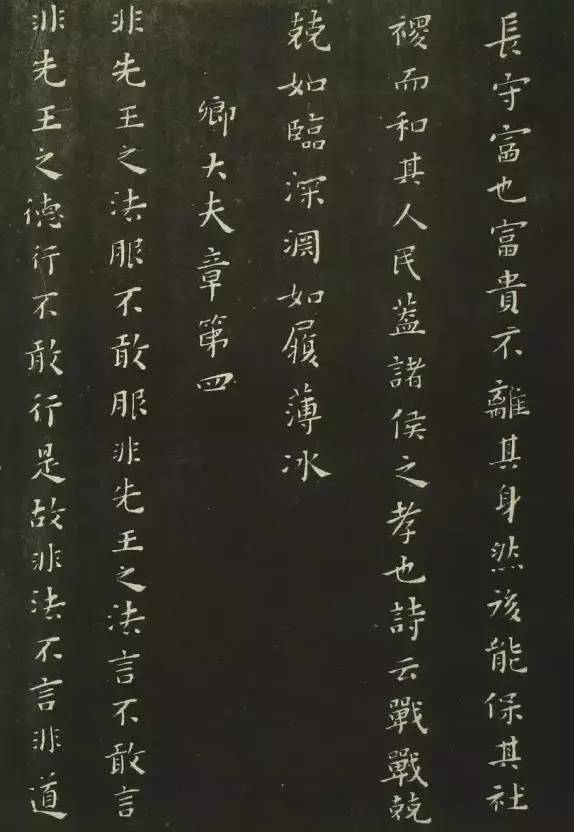 長守富也富貴不離其身然後能保其社
稷而和其人民蓋諸侯之孝也詩云戰戰兢
兢如臨深淵如履薄冰
卿大夫章第四
非先王之法服不敢服非先王之法言不敢言
非先王之德行不敢行是故非法不言非道